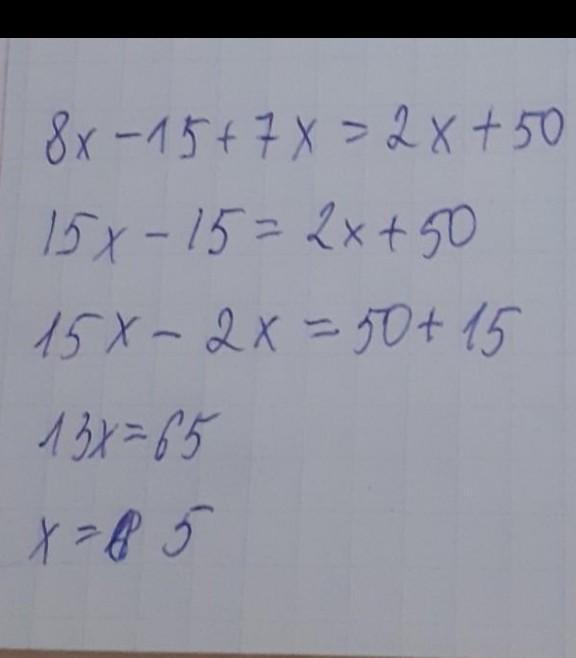 8x-15+7x=2x+50
15x-15=2x+50
15x-2x=50+15
13x=65
x= 5